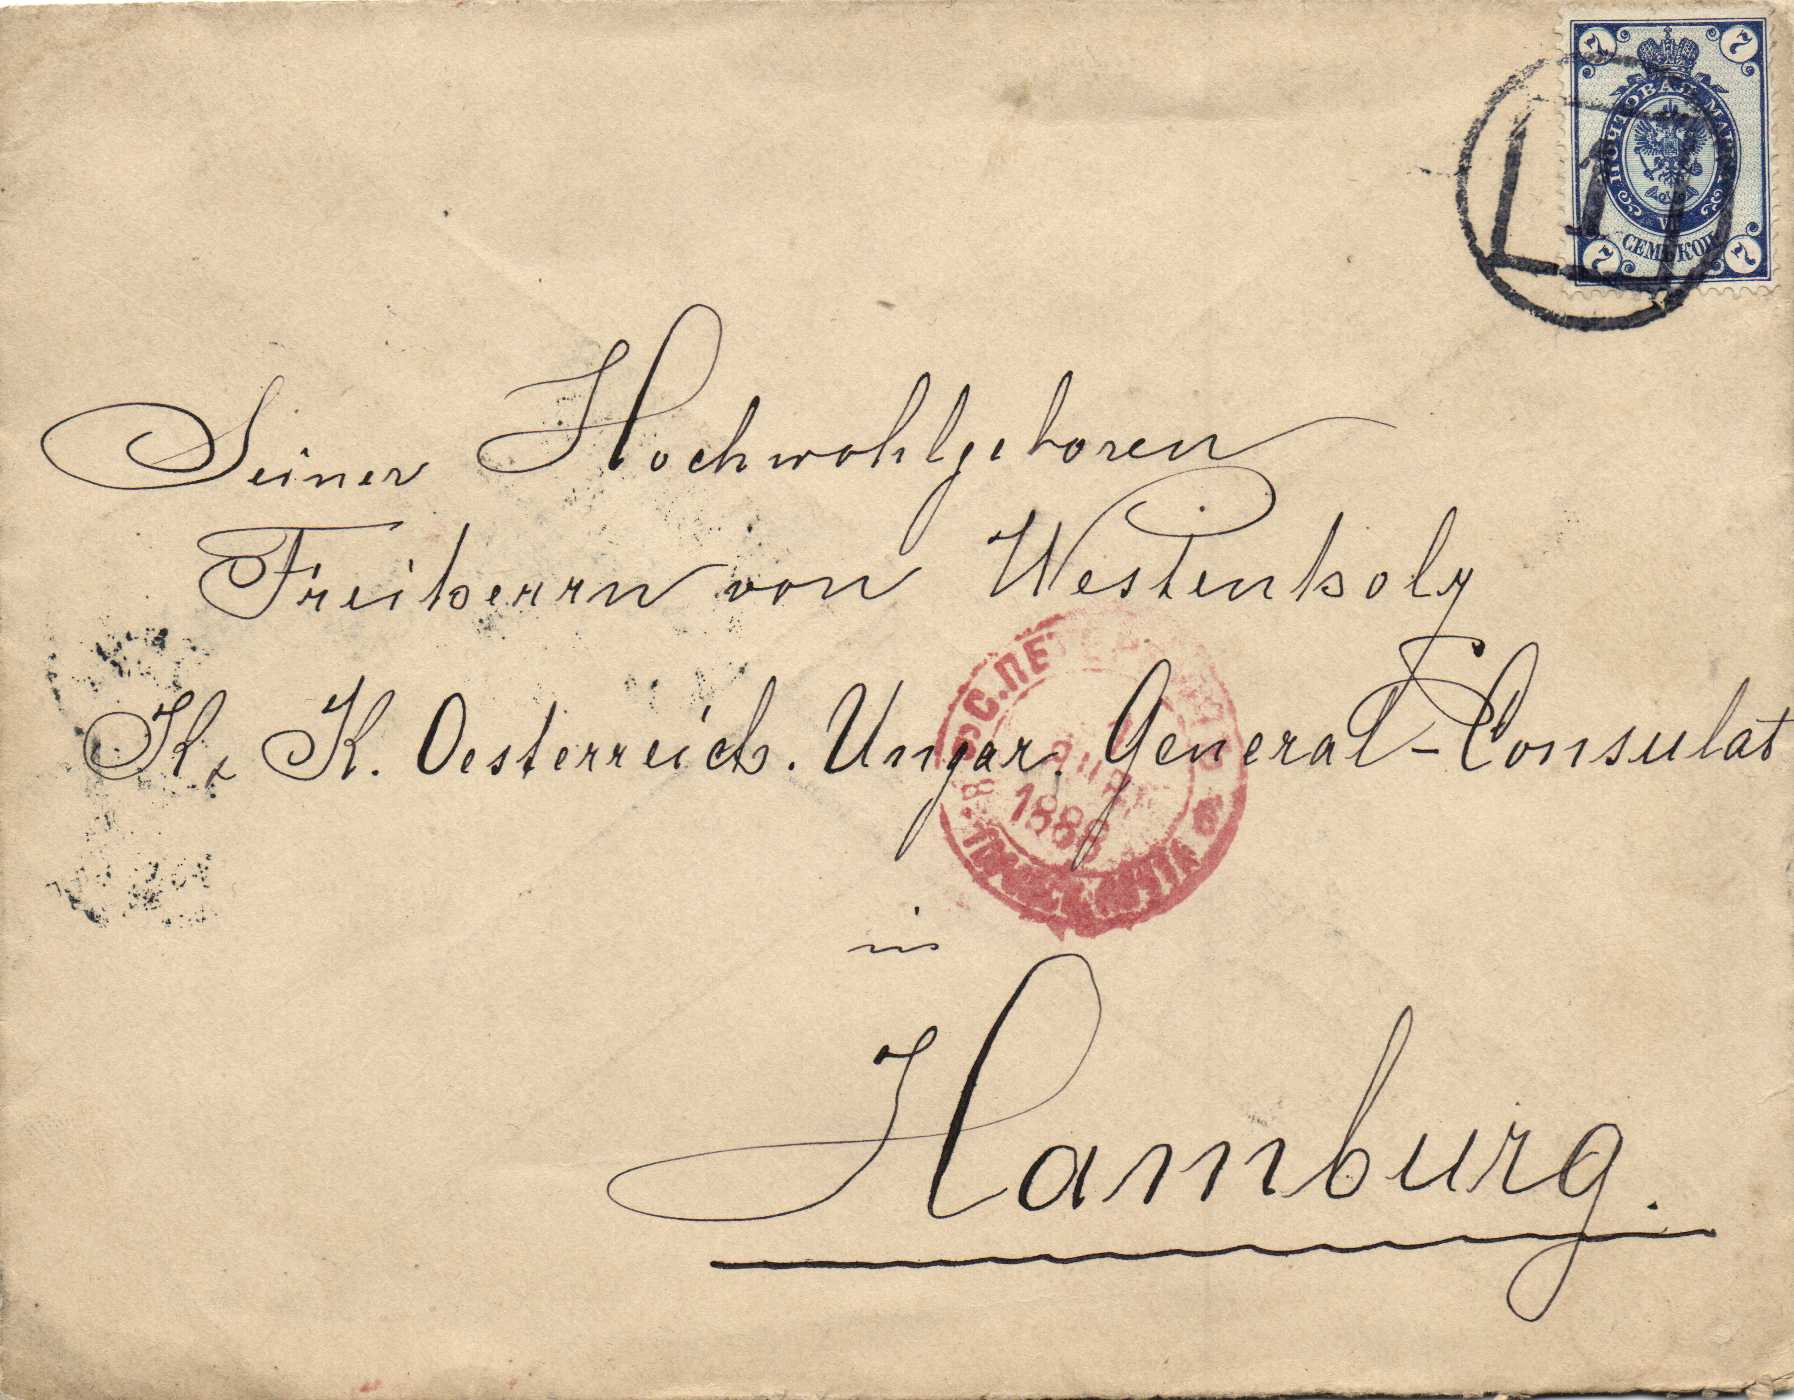 7 7
ПОЧТОВАЯ МАРКА
СЕМЬ КОП
7 7
1
Seiner Hochwohlgeboren
Freiherrn von Westenholz
K. K. Oesterreich. Ungar. General-Consulat
С.ПЕТЕРБ
188
ПОЧТА
in
Hamburg.